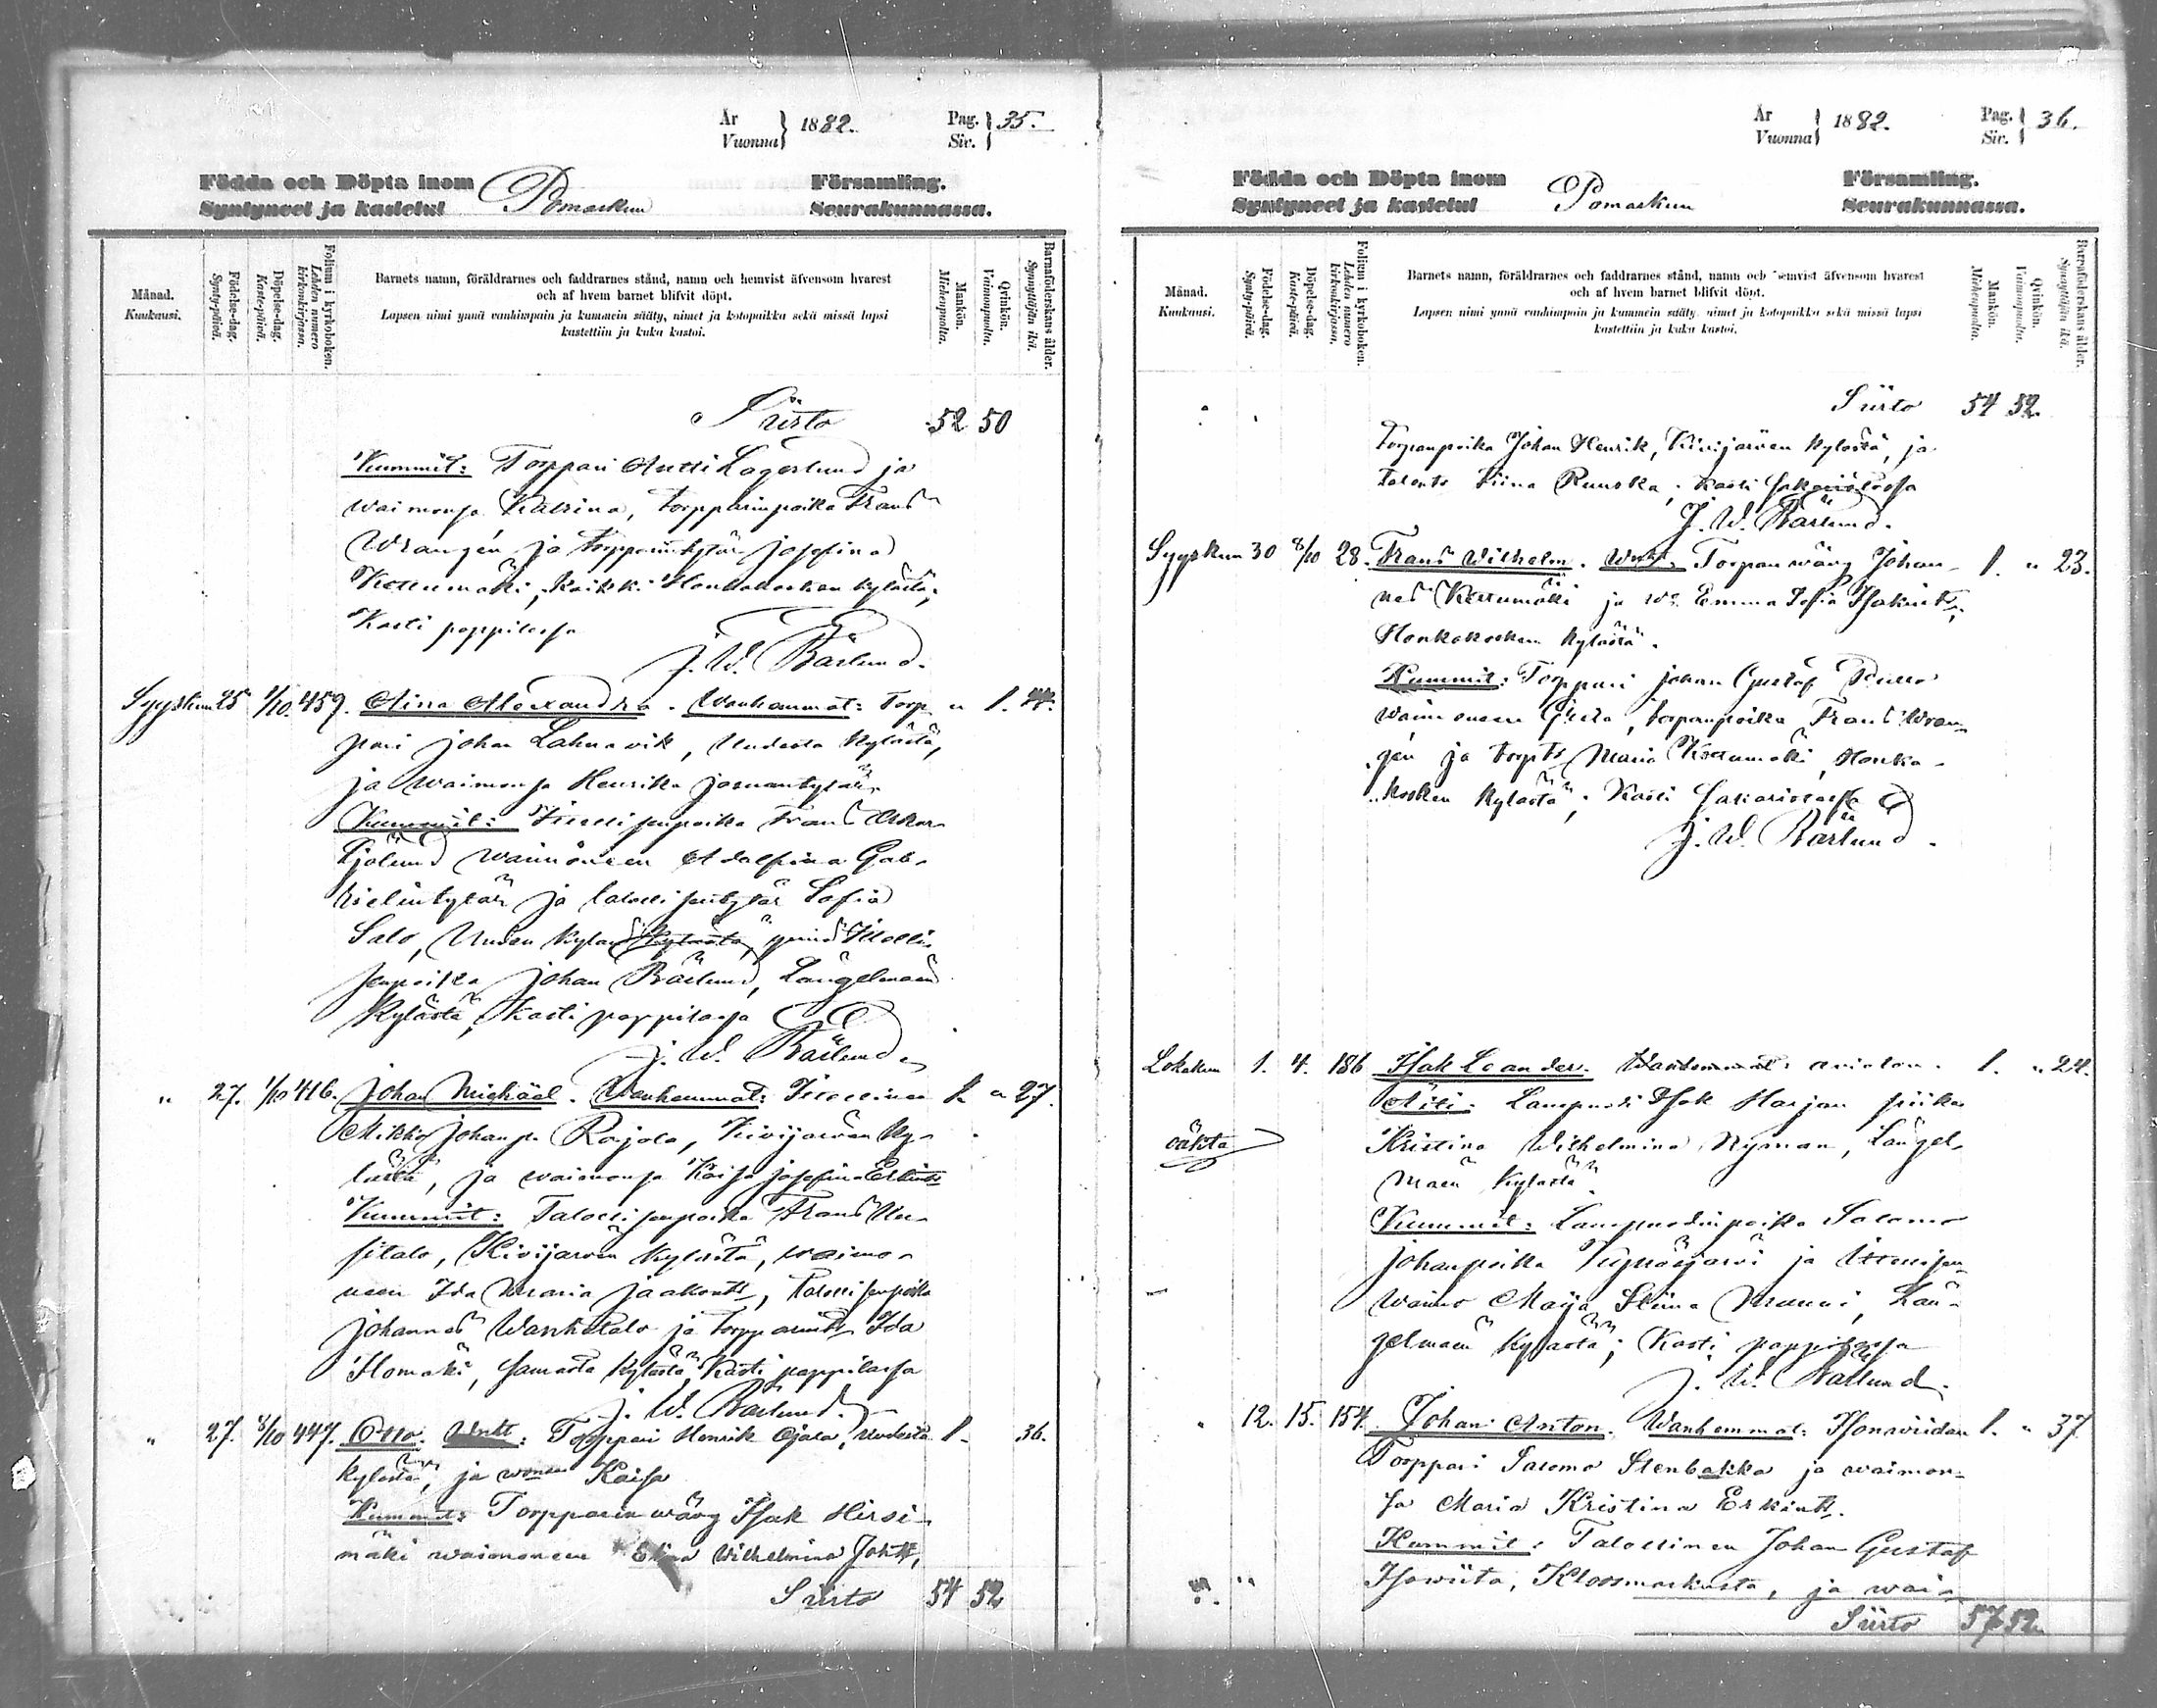 År
Vuonna } 1882.
Pag.
Siv. } 35.
Födda och Döpta inom
Syntyneet ja kastetut
Pomarkun
Församling.
Seurakunnassa.
Månad.
Kuukausi.
Födelse-dag.
Synty-päivä.
Döpelse-dag.
Kaste-päivä.
Folium i kyrkoboken.
Lehden numero kirkonkirjassa.
Barnets namn, föräldrarnes och faddrarnes stånd, namn och hemvist äfvensom hvarest
och af hvem barnet blifvit döpt.
Lapsen nimi ynnä vanhimpain ja kummein sääty, nimet ja kotopaikka sekä missä lapsi
kastettiin ja kuka kastoi.
Mankön.
Miehenpuolta.
Qvinkön.
Vaimonpuolta.
Barnaföderskans ålder.
Synnyttäjän ikä.
Siirto 52 50
Kummit: Torppari Antti Lagerlund ja
waimonsa Katrina, torpparinpoika Frans
Wrangén ja torpparintytär Josefina
Kettumäki, kaikki Honkakosken kylästä;
Kasti pappilassa
J. W. Bärlund.
Syyskuu 25 1/10. 459. Aina Alexandra. Wanhammat: Torp- " 1.
pari Johan Lahnavik, Uudesta kylästä,
ja waimonsa Henrika Joonantytär
Kummit: poika Frans Oskar
waimoneen Adolfina Gab-
rielintytär ja talollisentytär Sofia
Salo, Uuden kylän kylästä, ynnä
senpoika Johan Bärlund, Längelmaen
kylästä; Kasti pappilassa
J. W. Bärlund
" 27. 1/10 416. Johan Michäel. Wanhemmat: 1. " 27.
Mikko Johanp. Rajala, Kivijärven ky-
lästä, ja waimonsa Kaisa Josefina
Kummit: Talollisenpoika Frans Uu-
sitalo, Kivijärven kylästä, waimo-
neen Ida Maria Jaakont., talollisenpoika
Johannes Wanhatalo ja torpparint. Ida
Ilomäki, samasta kylästä; Kasti pappilassa
J. W. Bärlund.
" 27. 8/10 447. Otto. : Torppari Henrik Ojala, Uudesta 1. 36.
kylästä, ja Kaisa
Kummit: Torpparin wäwy Isak Hirsi-
mäki waimoneen Wilhelmina
Siirto 54 52
År
Vuonna } 1882.
Pag.
Siv. } 36.
Födda och Döpta inom
Syntyneet ja kastetut
Pomarkun
Församling.
Seurakunnassa.
Månad.
Kuukausi.
Födelse-dag.
Synty-päivä.
Döpelse-dag.
Kaste-päivä.
Folium i kyrkoboken.
Lehden numero kirkonkirjassa.
Barnets namn, föräldrarnes och faddrarnes stånd, namn och hemvist äfvensom hvarest
och af hvem barnet blifvit döpt.
Lapsen nimi ynnä vanhimpain ja kummein sääty, nimet ja kotopaikka sekä missä lapsi
kastettiin ja kuka kastoi.
Mankön.
Miehenpuolta.
Qvinkön.
Vaimonpuolta.
Barnaföderskans ålder.
Synnyttäjän ikä.
Siirto 54 52.
Torpanpoika Johan Henrik, Kivijärven kylästä, ja
Ruuska; kasti
J. W. Bärlund.
Syyskuu 30 8/10 28. Frans Wilhelm. Torpan wäwy Johan- 1. " 23.
nes Kettumäki ja Emma Sofia
Honkakosken kylästä.
Kummit: Torppari Johan Gustaf
waimoneen Greta, torpanpoika Frans Wran-
gén ja Maria Kettumäki, Honka-
kosken kylästä; Kasti
J. W. Bärlund.
Lokakuu 1. 4. 186 Isak Leander. Wanhemmat: 1. " 24.
Äiti: Lampuodi Isak Harjan piika
oäkta
Kristina Wilhelmina Nyman, Längel-
maen kylästä.
Kummit: Lampuodinpoika Salomo
Johanpoika ja
waimo Maija Stina Län-
gelmaen kylästä; Kasti pappilassa
J. W. Bärlund.
" 12. 15. 154. Johan Anton. Wanhemmat: Isonwiidan 1. " 37
Torppari Salomo Stenbakka ja waimon-
sa Maria Kristina Erkint.
Kummit: Talollinen Johan Gustaf
Isowiita, Kloosmarkusta, ja wai-
Siirto 57 52